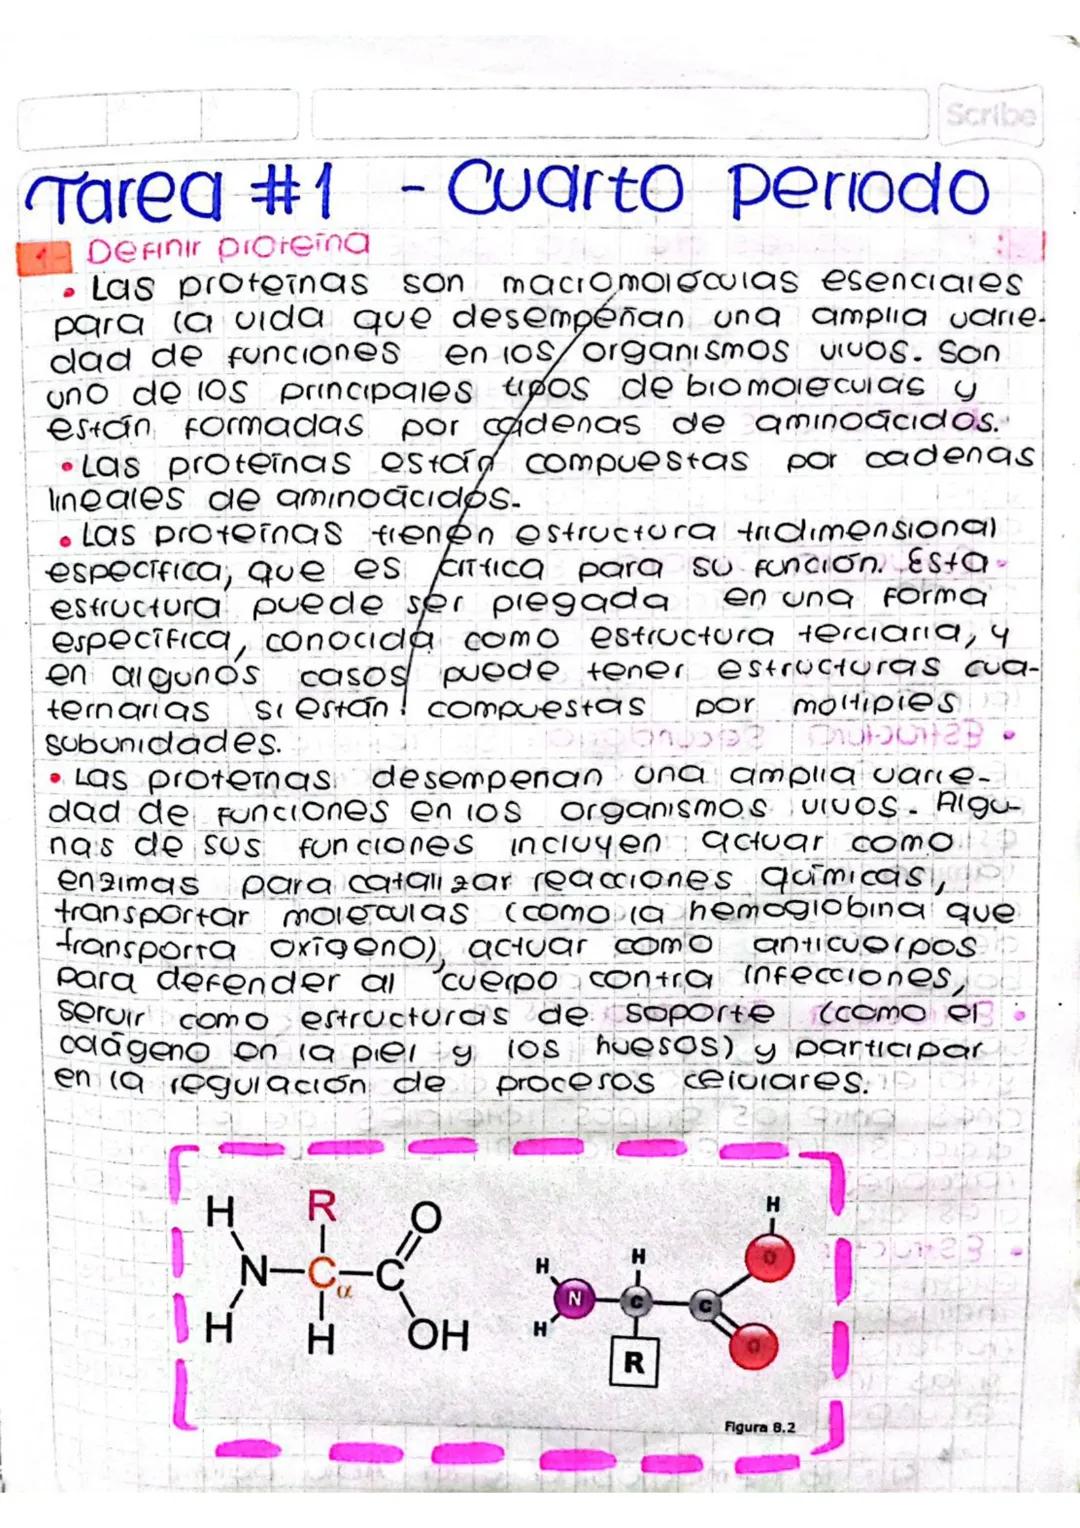 Scribe
Tarea #1 - Cuarto periodo
1- Definir proteína
• Las proteínas son macromoléculas esenciales
para la vida que desempeñan una amplia varie-
dad de funciones en los organismos vivos. Son
uno de los principales tipos de biomoleculas y
están formadas por cadenas de aminoácidos.
• Las proteínas están compuestas por cadenas
lineales de aminoácidos.
• Las proteínas tienen estructura tridimensional
específica, que es crítica para su función. Esta
estructura puede ser plegada en una forma
específica, conocida como estructura terciaria, y
en algunos casos puede tener estructuras cua-
ternarias si están compuestas por moltiples
subunidades.
• Las proteínas desempeñan una amplia varie-
dad de funciones en los organismos vivos. Algu-
nas de sus funciones incluyen actuar como
enzimas para catalizar reacciones químicas,
transportar moléculas (como la hemoglobina que
transporta oxígeno), actuar como anticuerpos
para defender al cuerpo contra infecciones,
servir como estructuras de soporte (como el
colágeno en la piel y los huesos) y participar
en la regulación de procesos celulares.
H R O
N-Cα-C
H H OH
H H H O
N C C
H R O
Figura 8.2